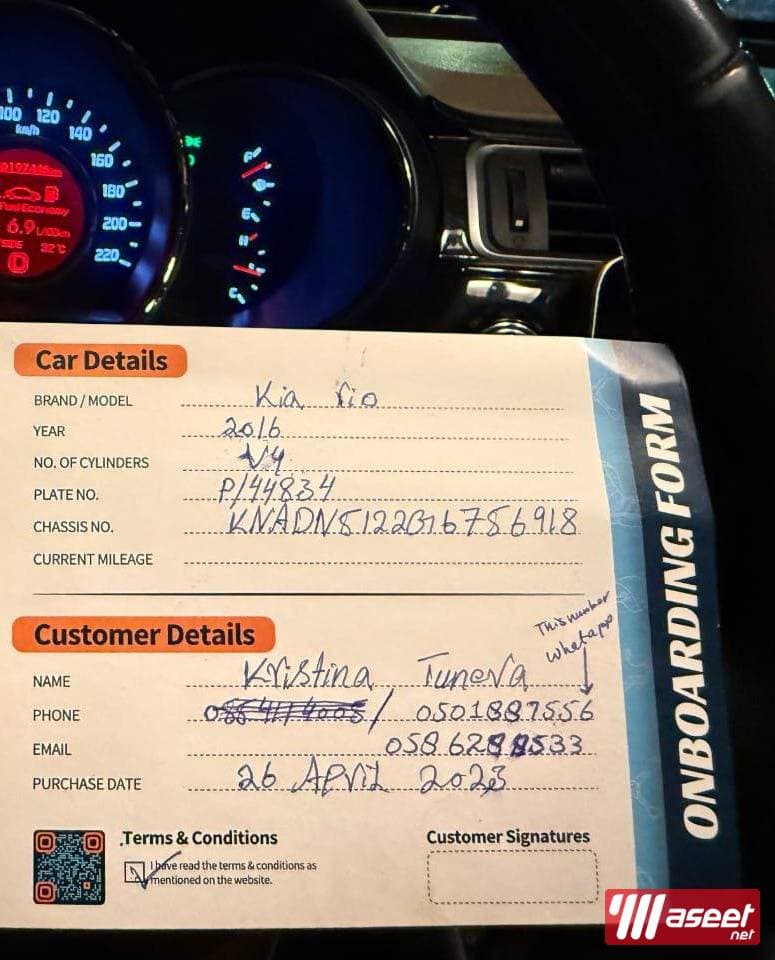 100 120 140 160 180 200 220
km/h
Fuel Economy
6.9 L/100km
32°C
D
F
E
H
C
Car Details
BRAND / MODEL Kia rio
YEAR 2016
NO. OF CYLINDERS V4
PLATE NO. P/44834
CHASSIS NO. KNADN5122G6756918
CURRENT MILEAGE
Customer Details
This number
whatapp
NAME Kristina Tuneva
PHONE / 0501887556
EMAIL 0586288533
PURCHASE DATE 26 April 2023
Terms & Conditions
I have read the terms & conditions as
mentioned on the website.
Customer Signatures
ONBOARDING FORM
Maseet
net